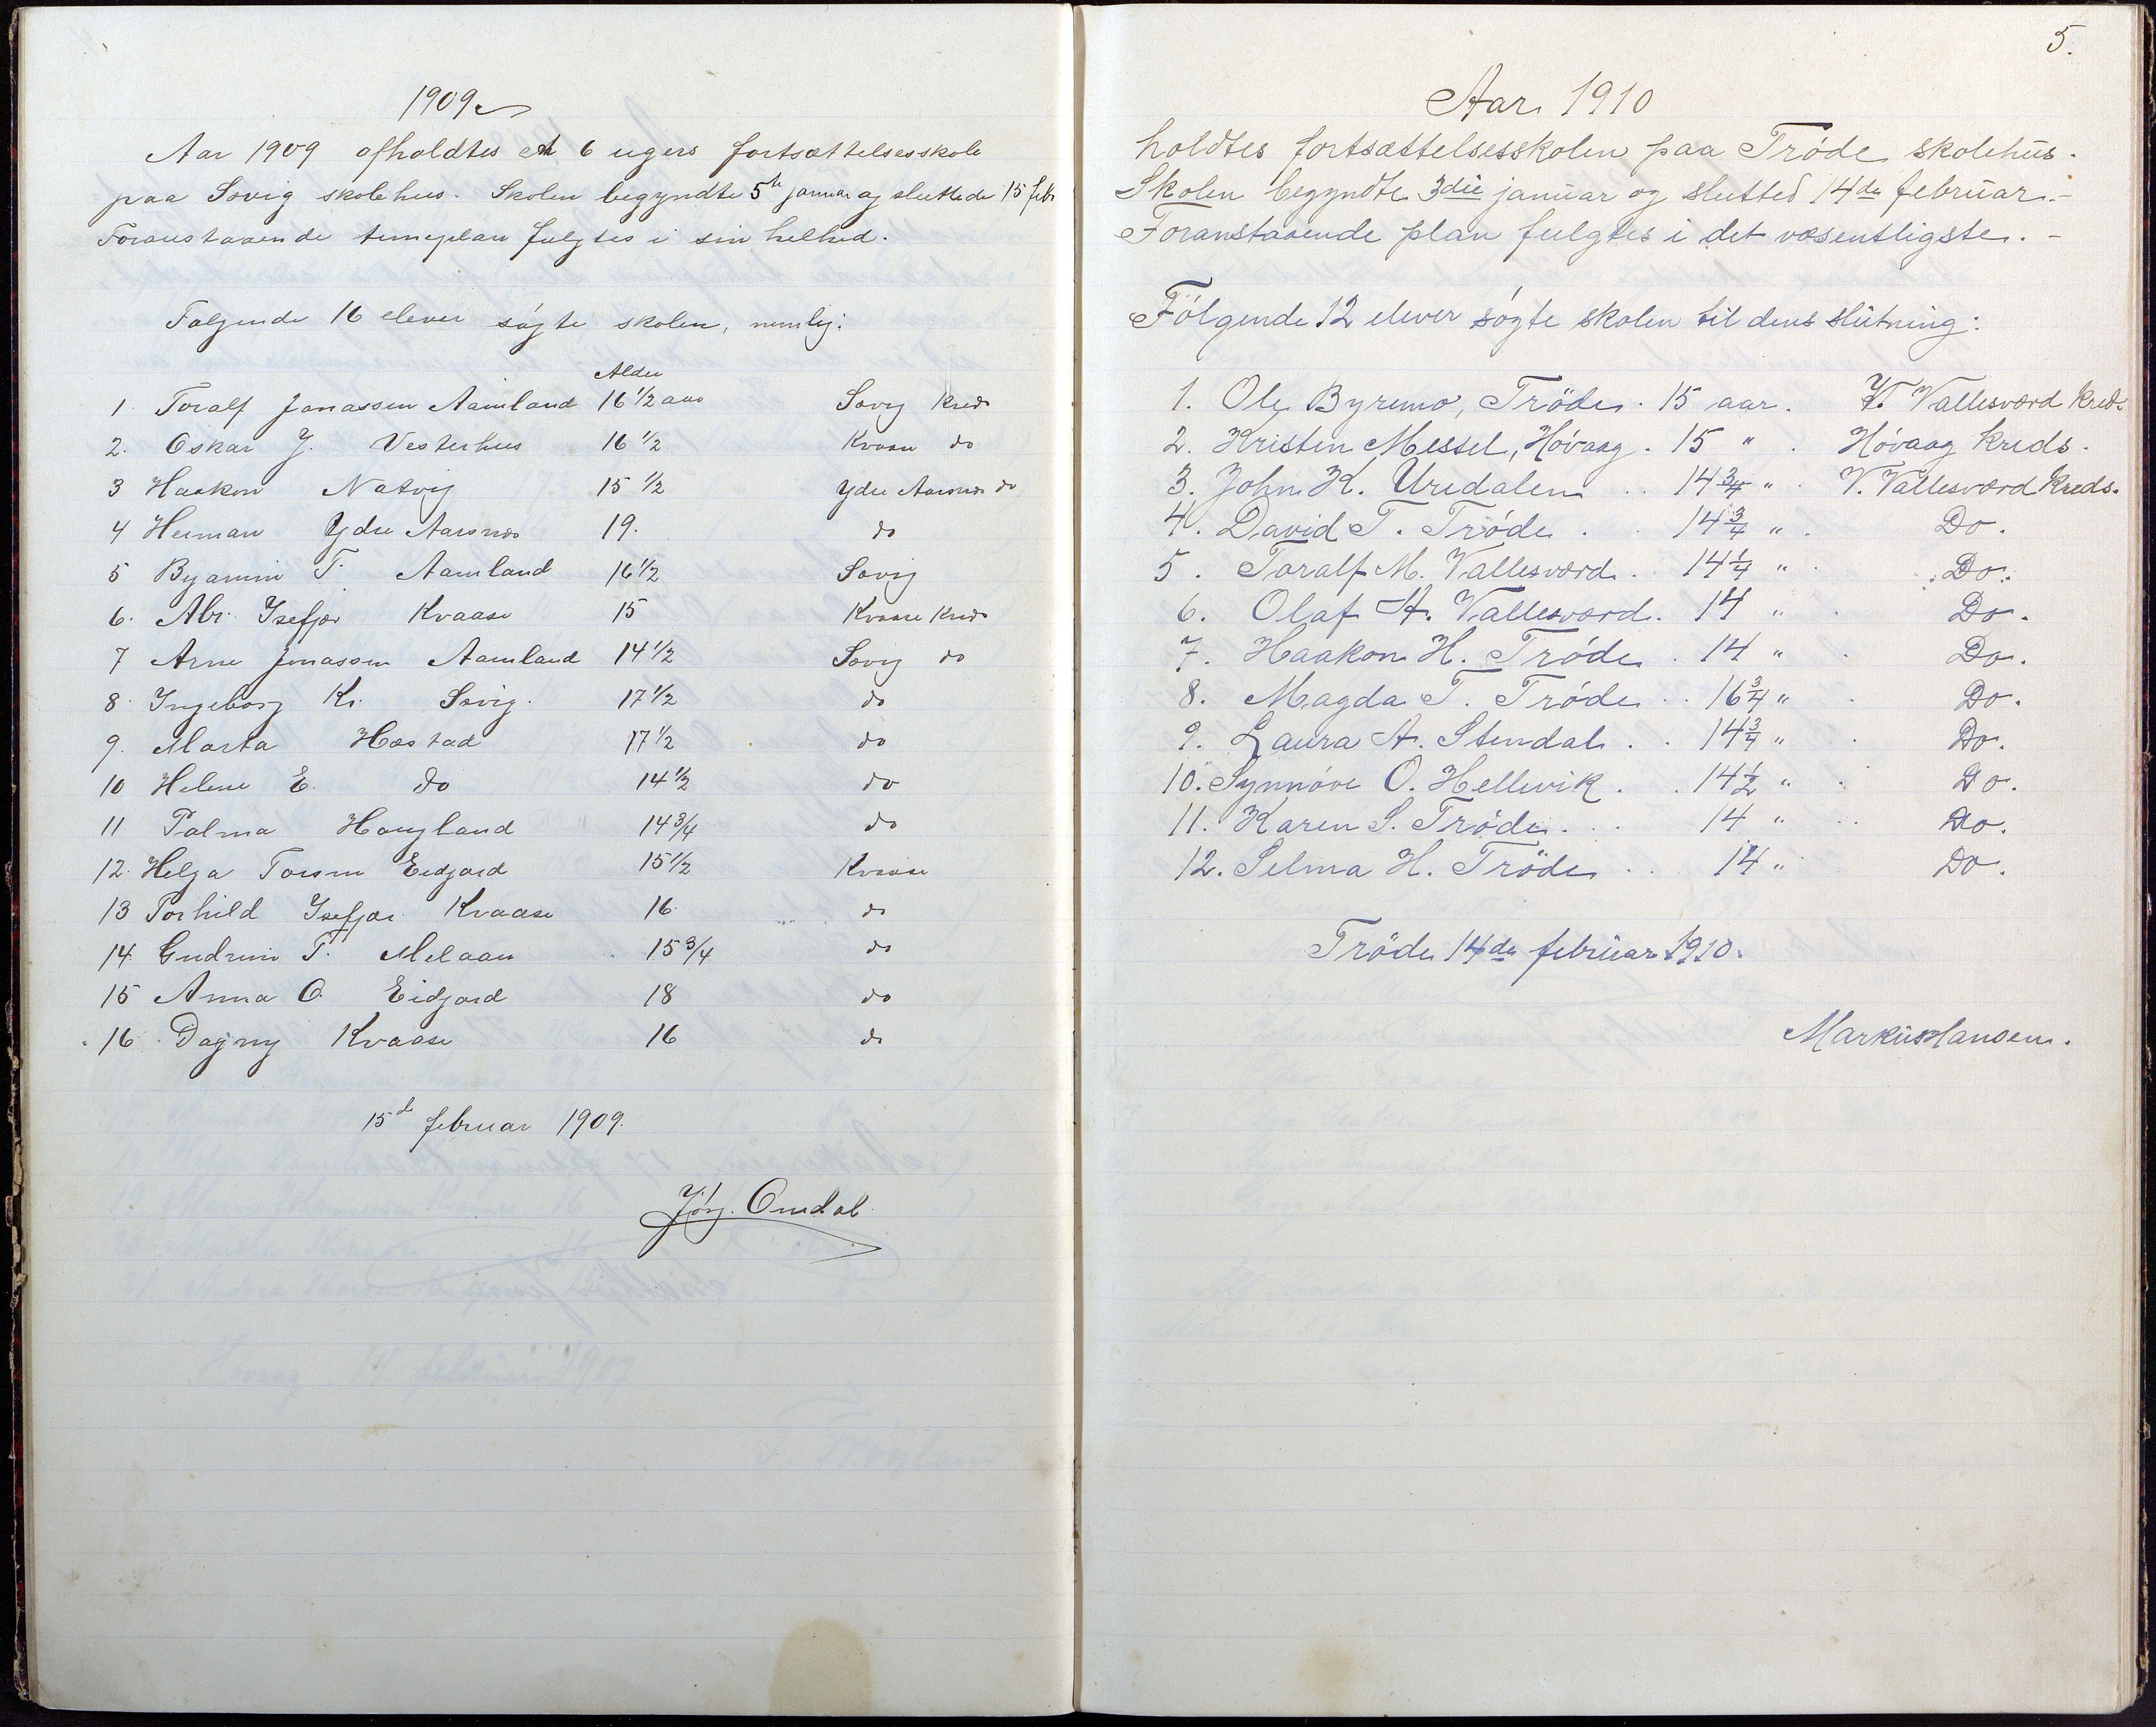 1909.
Aar 1909 afholdtes et 6 ugers fortsættelsesskole
paa Søvig skolehus. Skolen begyndte 5te januar og sluttede 15 febr
Foranstaaende timeplan fulgtes i sin helhed.
Følgende 16 elever søgte skolen, nemlig:
Alder
1. Toralf Jonassen Aamland 16 1/2 aar Søvig Kreds
2. Oskar J. Vesterhus 16 1/2 Kvaase do
3 Haakon Natvig 15 1/2 Ydre Aarsnæs do
4 Herman Ydre Aarsnæs 19. do
5 Byamin T. Aamland 16 1/2 Søvig
6. Abr. Isefjær Kvaase 15 Kvaase Kreds
7 Arne Jonassen Aamland 14 1/2 Søvig do
8. Ingeborg Kr. Søvig. 17 1/2 do
9. Marta Hæstad 17 1/2 do
10 Helene E. do 14 1/2 do
11 Palma Hougland 14 3/4 do
12. Helga Torsen Eidjord 15 1/2 Kvaase
13 Torhild Isefjær Kvaase 16 do
14. Gudrun T. Melaan 15 3/4 do
15 Anna O. Eidjord 18 do
16. Dagny Kvaase 16 do
15de februar 1909.
Jørg. Omdal.
5.
Aar 1910
holdtes fortsættelsesskolen paa Trøde skolehus.
Skolen begyndte 3die januar og slutted 14de februar.-
Foranstaaende plan fulgtes i det væsentligste.-
Følgende 12 elever søgte skolen til dens slutning:
1. Ole Byremo, Trøde. 15 aar. V. Vallesværd Kreds.
2. Kristen Messel, Høvaag. 15 " . Høvaag Kreds.
3. John K. Uredalen .. 14 3/4 " . V. Vallesværd Kreds.
4. David T. Trøde . . 14 3/4 " . Do.
5. Toralf M. Vallesværd. . 14 1/4 " . Do.
6. Olaf A. Vallesværd. 14 " . Do.
7. Haakon H. Trøde . 14 " . Do.
8. Magda T. Trøde . . 16 3/4 " . Do.
9. Laura A. Stendal . . 14 3/4 " . Do.
10. Synnøve O. Hellevik . . 14 1/2 " . Do.
11. Karen S. Trøde . . . 14 " . . Do.
12. Selma H. Trøde . . 14 " Do.
Trøde 14de februar 1910.
Markus Hansen.